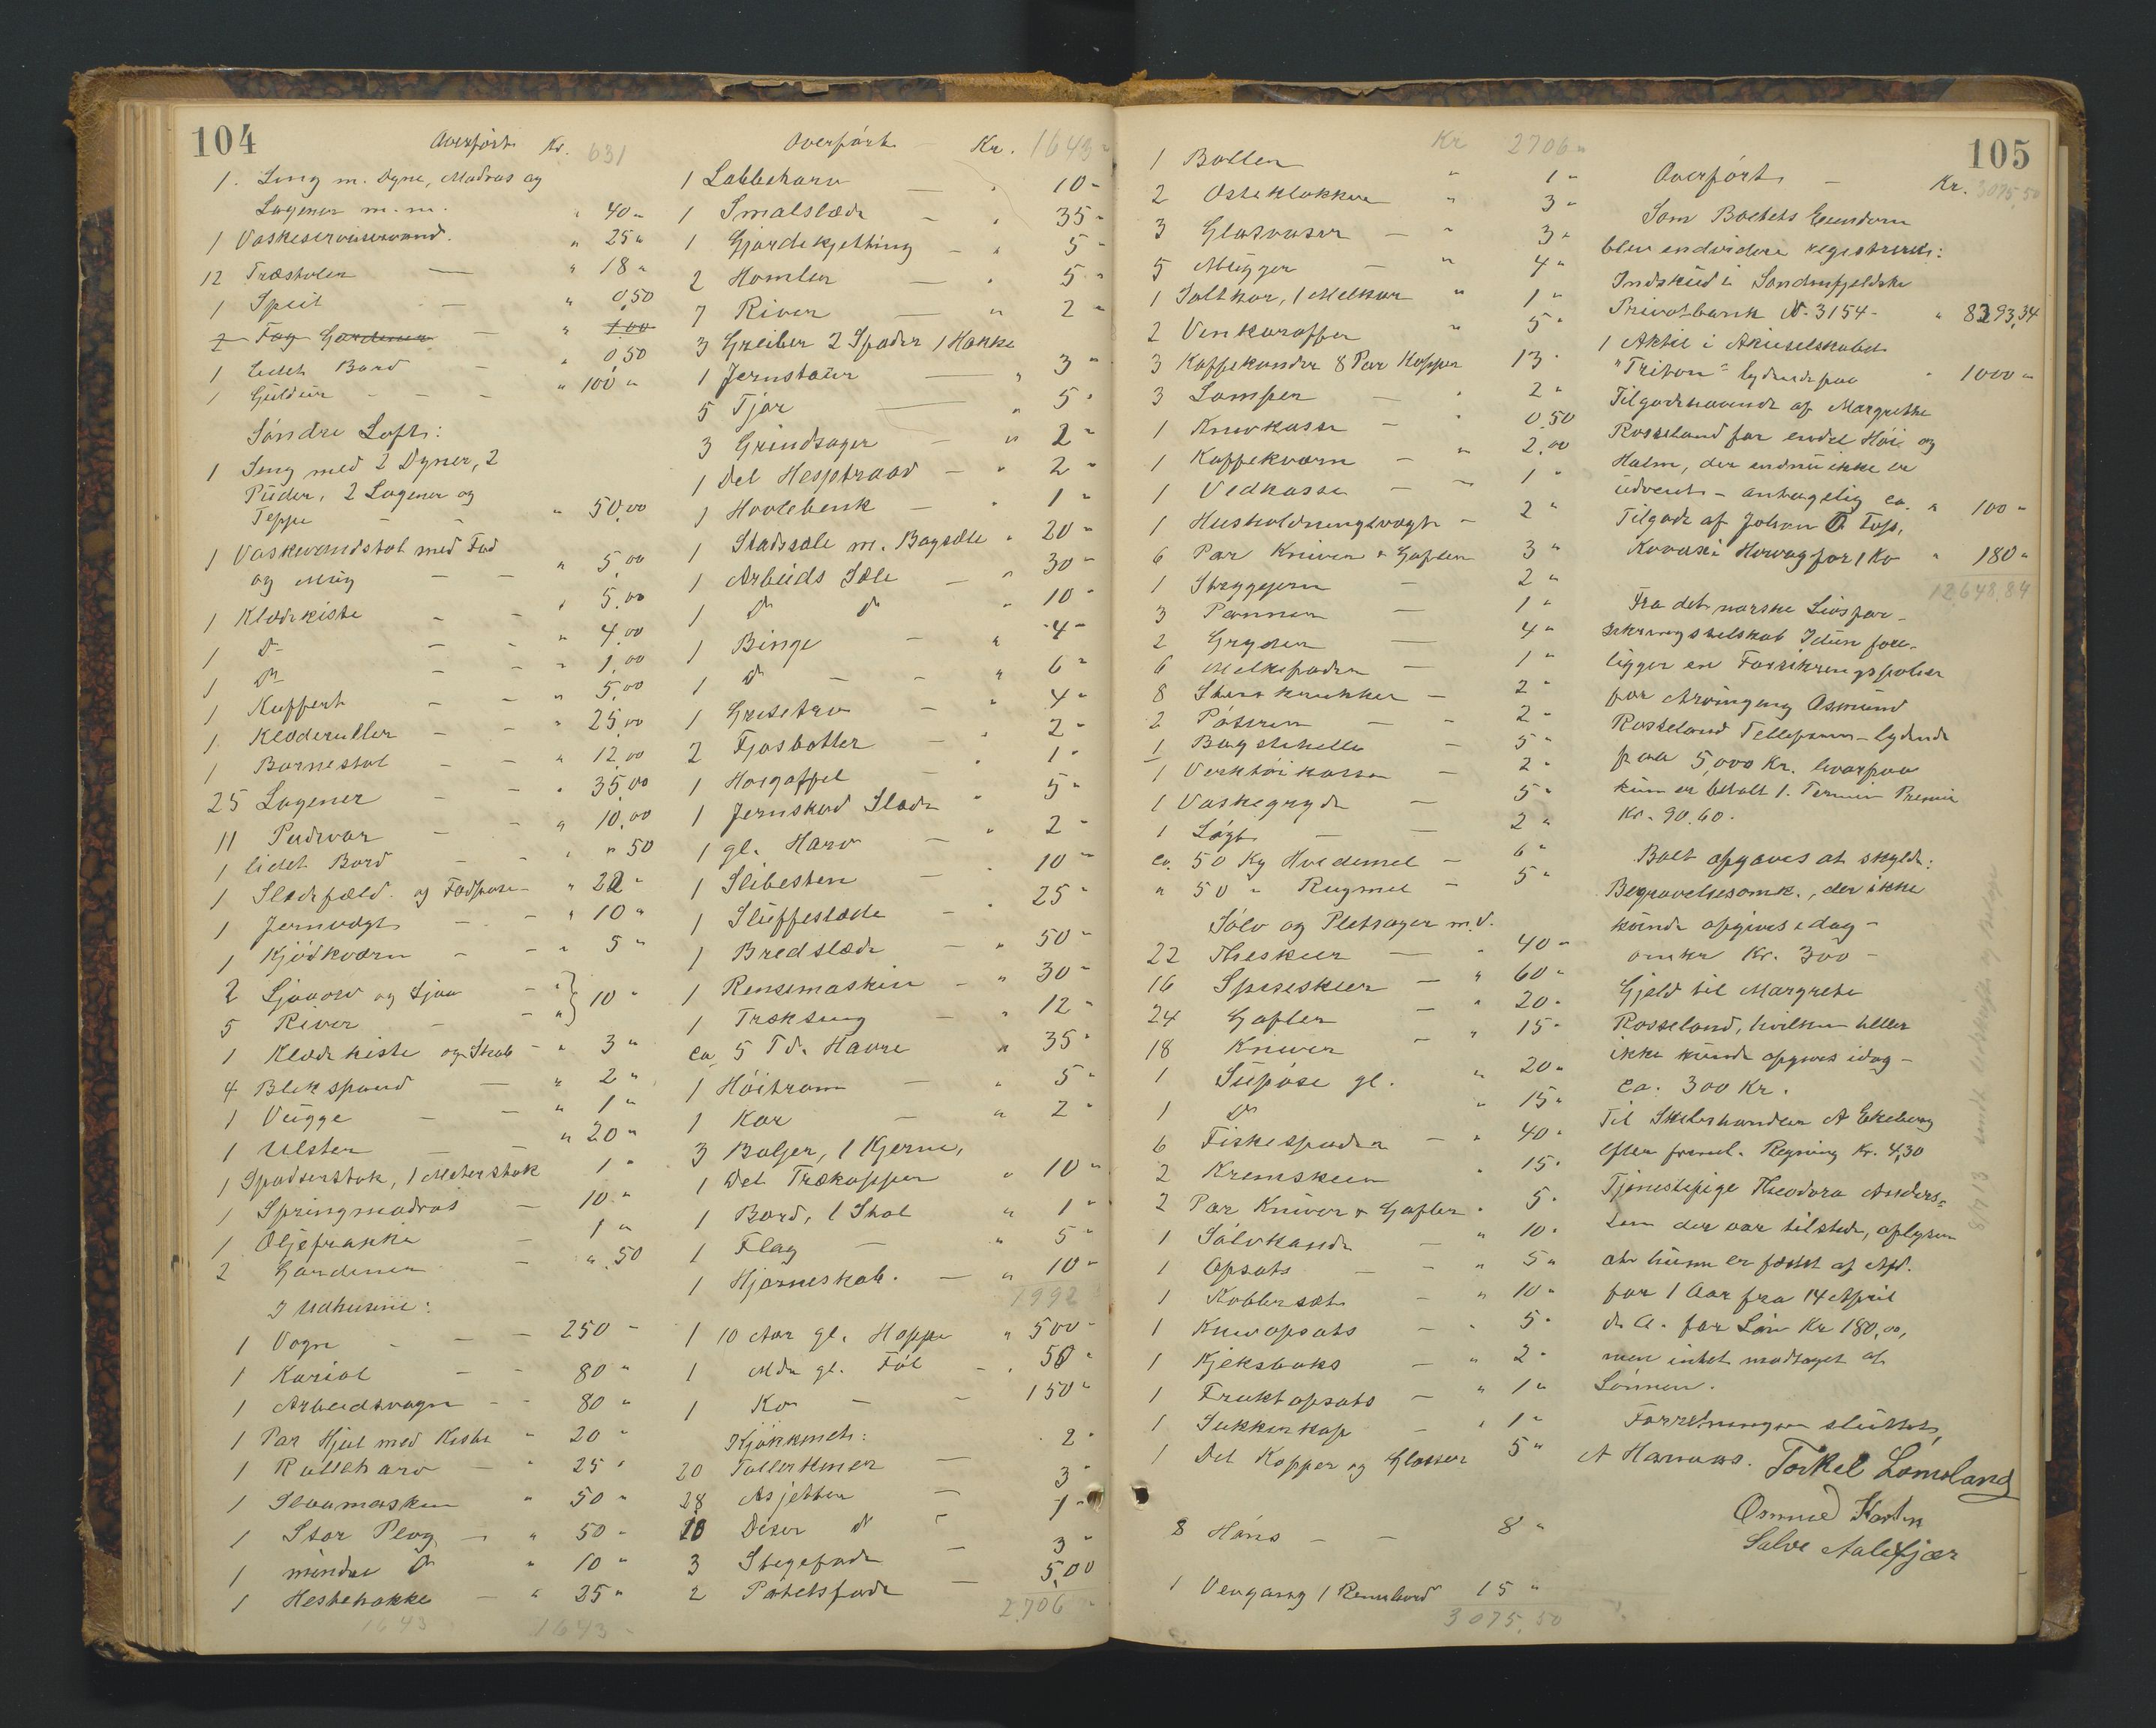 104
Overført Kr. 631
1. Seng m. Dyne, Madras og
Lagener m.m. " 40 "
1 Vaskeservisevand. " 25 "
12 Træstoler — " 18 "
1 Speil — " 0,50
2 Fag Gardiner — " 1,00
1 lidet Bord — " 0,50
1 Guldur - - - " 100 "
Søndre Loft:
1 Seng med 2 Dyner, 2
Puder, 2 Lagener og
Teppe " 50,00
1 Vaskevandstol med Fad
og Mug — — " 5,00
1 Klædekiste - - " 5,00
1 Do - - " 4,00
1 Do - - " 1,00
1 Kuffert - - " 5,00
1 Klæderuller - - " 25,00
1 Barnestol - - " 12,00
25 Lagener - - " 35,00
11 Pudevar - - " 10,00
1 lidet Bord - - " " 50
1 Slædefæld og Fodpose - " 22 "
1 Jernvogt - - " 10 "
1 Kjødkværn - - " 5 "
2 Ljaaorv og Ljaa - " 10 "
5 River - - "
1 Klædekiste og Skab - " 3 "
4 Blikspand — " 2 "
1 Vugge - - " 1 "
1 Ulster — " 20 "
1 Spadserstok, 1 Meterstok 1 "
1 Springmadras — 10 "
1 Oljefrakke — 1 "
2 Gardiner — " 50
I Udhusene:
1 Vogn - - - 250 -
1 Kariol — 80 "
1 Arbeidsvogn - - 80 "
1 Par Hjul med Kiste " 20 "
1 Rulleharv — " 25 "
1 Slaamaskin " 50 "
1 Stor Plog — " 50 -
1 mindre Do " 10 "
1 Hestehakke — " 25 "
1643 1643 -
Overført Kr. 1643 "
1 Labbeharv — " 10 -
1 Smalslæde — " 35 -
1 Gjordekjetting — " 5 -
2 Homler — " 5 "
7 River — " 2 -
3 Greiber 2 Spader 1 Hakke
1 Jernstaur — " 3 "
5 Tjor — " 5 "
3 Grindsager — " 2 "
1 Del Hesptraad — " 2 -
1 Hovlebenk — " 1 -
1 Stadssæle m. Bagsæle " 20 -
1 Arbeids Sæle — " 30 -
1 Do Do " 10 -
1 Binge — " 4 -
1 Do — " 6 -
1 Grisetro — " 4 "
2 Fjøsbøtter — " 2 -
1 Høigaffel — " 1 "
1 Jernskod Slæde " 5 "
1 gl. Harv — " 2 -
1 Slibesten — " 10 "
1 Sluffeslæde — " 25 "
1 Bredslæde — " 50 -
1 Rensemaskin — " 30 -
1 Trækseng — " 12 "
ca 5 Td. Havre " 35 "
1 Høitrom — " 5 "
1 Kar — " 2 -
3 Baljer, 1 Kjerne,
1 Del Trækopper " 10 "
1 Bord, 1 Stol " 1 "
1 Flag — " 5 "
1 Hjørneskab. — " 10 -
1992
1 10 Aar gl. Hoppe " 500 -
1 Mdr gl. Føl — " 50 "
1 Ko — — 150 "
Kjøkkenet:
20 Tallerkener — 2 "
28 Asjetter — 3 "
10 Diser Do — 1 "
3 Stegefade — 3 "
2 Potetsfade — 5,00
2706 -
105
Kr 2706 "
1 Boller " 1 "
2 Osteklokker " 3 "
3 Glasvaser — " 3 "
5 Mugger — " 4 "
1 Saltkar, 1 Melkar " 1 "
2 Vinkaraffer " 5 "
3 Kaffekander 8 Par Kopper 13 "
3 Lamper — " 2 "
1 Knivkasse — " 0,50
1 Kaffekværn — " 2,00
1 Vedkasse — — 1 "
1 Husholdningsvægt - 2 "
6 Par Kniver & Gafler 3 "
1 Strygejern — 2 "
3 Panner — 1 "
2 Gryder — 4 "
6 Melkefader — 1 "
8 Stenkrukker — 2 "
2 Pøser — — 2 "
1 Bagstehelle — 5 "
1 Verktøikasse — 2 "
1 Vaskegryde — 5 "
1 Løgt — — 2 "
ca. 50 Kg Hvedemel — 6 "
" 50 " Rugmel — 5 "
Sølv og Pletsager m.v.
22 Theskeer — " 40 "
16 Spiseskeer — " 60 "
24 Gafler — " 20 "
18 Kniver — " 15 "
1 Supøse gl. " 20 "
1 Do " 15 "
6 Fiskespader — " 40 "
2 Kremskeer " 15 "
2 Par Kniver & Gafler " 5 "
1 Sølvkande — " 10 "
1 Opsats — " 5 "
1 Koblersæt — " 10 "
1 Knivopsats — " 5 "
1 Kjeksboks — " 2 "
1 Fruktopsats — " 1 "
1 Sukkerkop — " 1 "
1 Del Kopper og Glasser 5 "
8 Høns — — 8 "
1 Vengang 1 Rensebord 15 "
3075,50
Overført — Kr. 3075,50
Som Boets Eiendom
blev endvidere registreret:
Indskud i Søndenfjeldske
Privatbank N. 3154 - " 8293,34
1 Aktie i Aktieselskabet
"Triton" lydende paa " 1000 "
Tilgodehavende af Margrethe
Rosseland for endel Høi og
Halm, der endnu ikke er
udveiet - antagelig ca. " 100 "
Tilgode af Johan O Foss,
Kovasi Hervag for 1 Ko " 180 "
12648,84
Fra det norske Livsfor-
sikringsselskab Idun fore-
ligger en Forsikringspolise
for Arvingen Osmund
Rosseland Tellefsen - lydende
paa 5,000 Kr. hvorpaa
kun er betalt 1. Termin Premie
Kr. 90.60.
Boet opgaves at skylde:
Begravelsesomk., der ikke
kunde opgives idag -
omkr Kr. 300 -
Gjeld til Margrete
Rosseland, hvilken heller
ikke kunde opgives idag -
ca. 300 Kr.
Til Skibshandler A Ekeberg
efter freml. Regning Kr. 4,30
Tjenestepige Theodora Anders-
sen der var tilstede, oplyser
at hun er fæstet af Afd.
for 1 Aar fra 14 April
d. A. for Løn Kr 180,00,
men intet modtaget af
Lønnen.
Forretningen sluttet,
A Harnaas. Torkel Lomsland
Osmund
Salve Aalefjær
8/4 13 sendt Udskrift